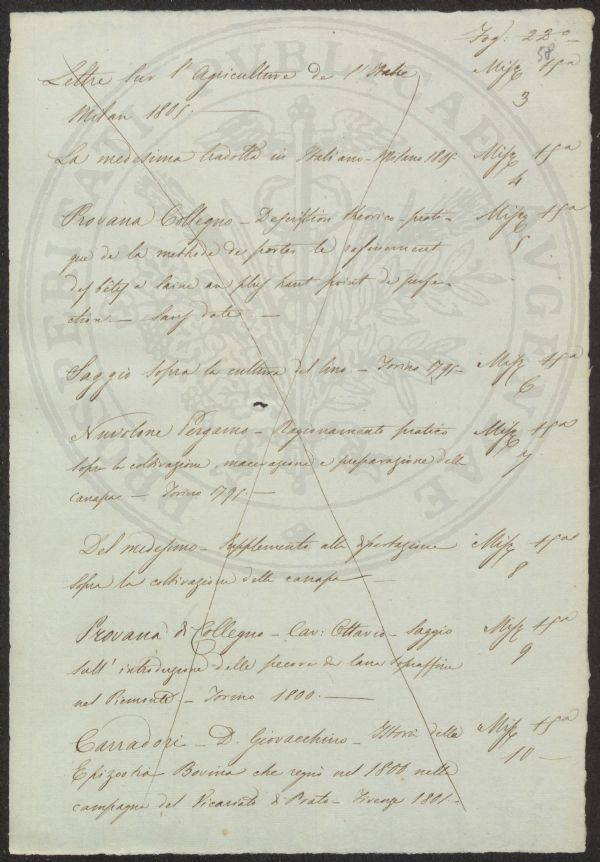 Fog. 22.º
58
Lettre sur l'Agriculture de l'Italie Misc 15ª
Milan 1805. — 3
La medesima tradotta in Italiano - Milano 1805. Misc 15ª
4
Provana Collegno - Description theorico-prati- Misc 15ª
que de la methode de porter le rafinement 5
des bêtes a laine au plus haut point de perfe-
ction. — Sans date —
Saggio sopra la cultura del lino - Torino 1795 - Misc 15ª
6
Nuvolone Pergamo - Ragionamento pratico Misc 15ª
sopra la coltivazione, macerazione e preparazione della 7
canapa - Torino 1795. —
Del medesimo - Supplemento alla dissertazione Misc 15ª
sopra la coltivazione della canapa — 8
Provana di Collegno - Cav: Ottavio - Saggio Misc 15ª
sull' introduzione delle pecore di lana sopraffina 9
nel Piemonte - Torino 1800. —
Carradori - D. Giovacchino - Istoria della Misc 15ª
Epizootia Bovina che regnò nel 1800 nelle 10 —
campagne del Vicariato di Prato - Firenze 1801. -
PROSPERITATI PVBLICAE AVGENDAE